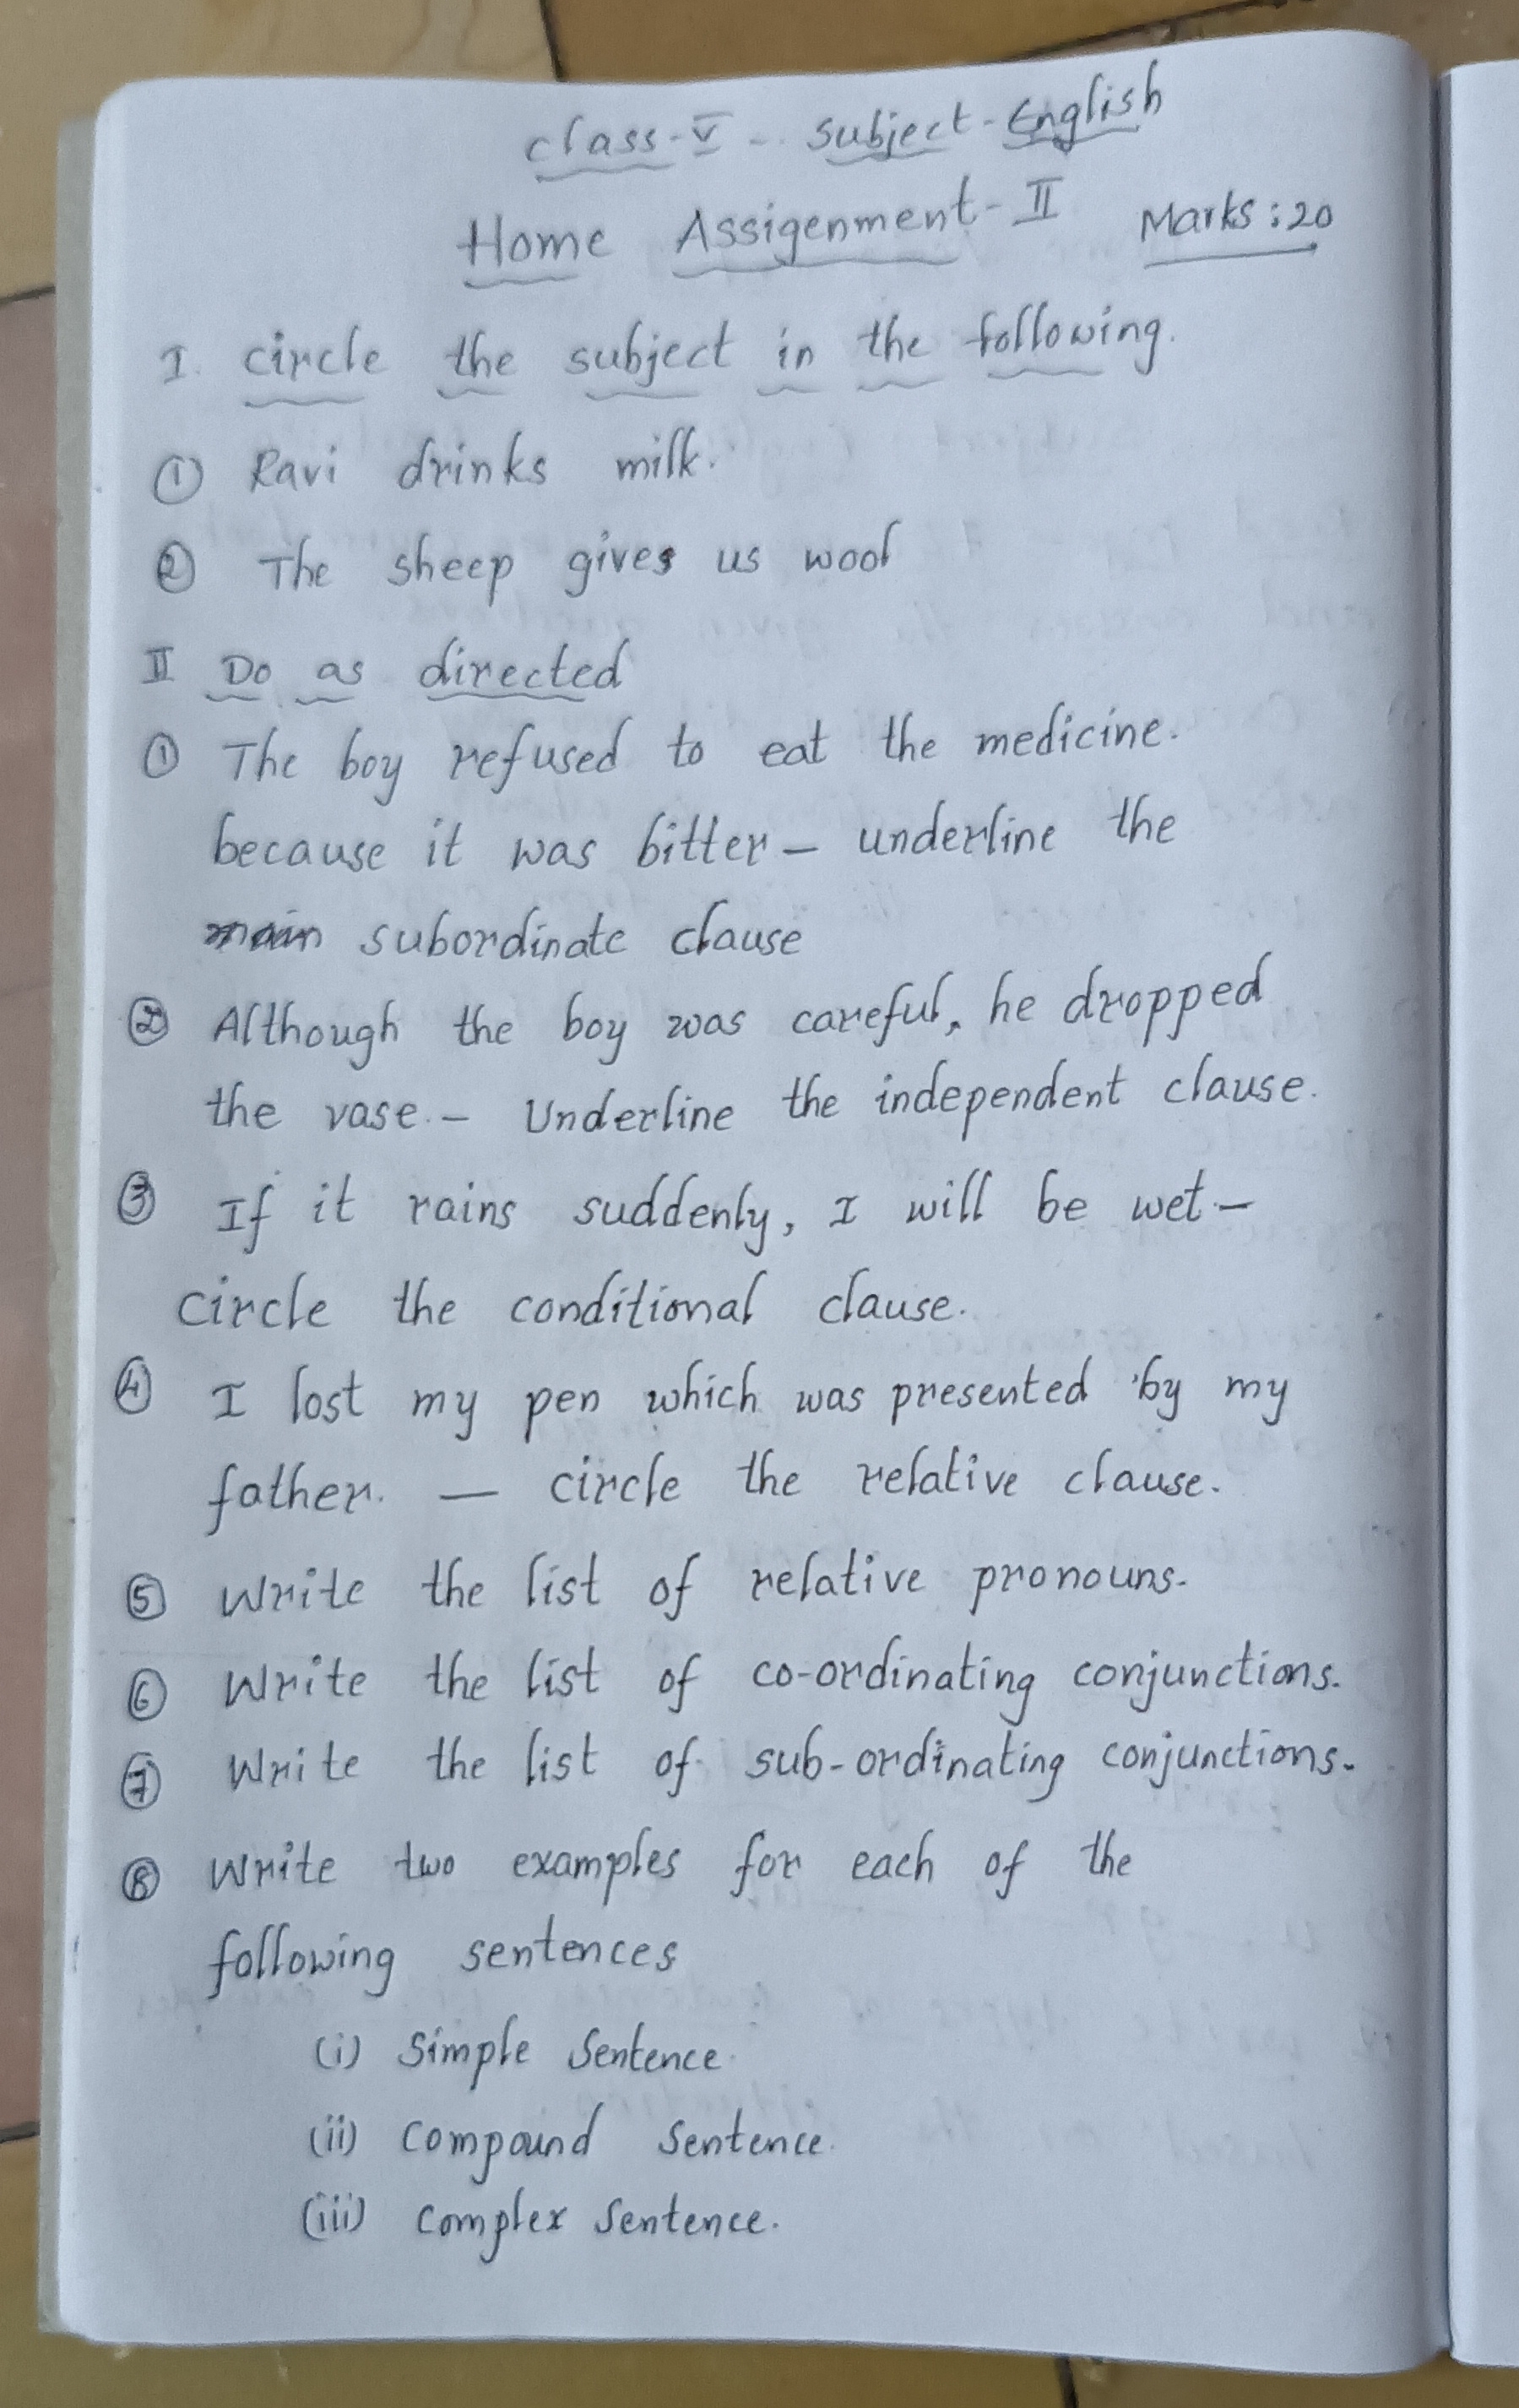 Class-V - Subject-English
Home Assigenment-II Marks: 20
I. circle the subject in the following.
① Ravi drinks milk.
② The sheep gives us wool
II Do as directed
① The boy refused to eat the medicine.
because it was bitter – underline the
main subordinate clause
② Although the boy was careful, he dropped
the vase. – Underline the independent clause.
③ If it rains suddenly, I will be wet –
circle the conditional clause.
④ I lost my pen which was presented by my
father. — circle the relative clause.
⑤ Write the list of relative pronouns.
⑥ Write the list of co-ordinating conjunctions.
⑦ Write the list of sub-ordinating conjunctions.
⑧ Write two examples for each of the
following sentences
(i) Simple Sentence.
(ii) Compound Sentence.
(iii) Complex Sentence.